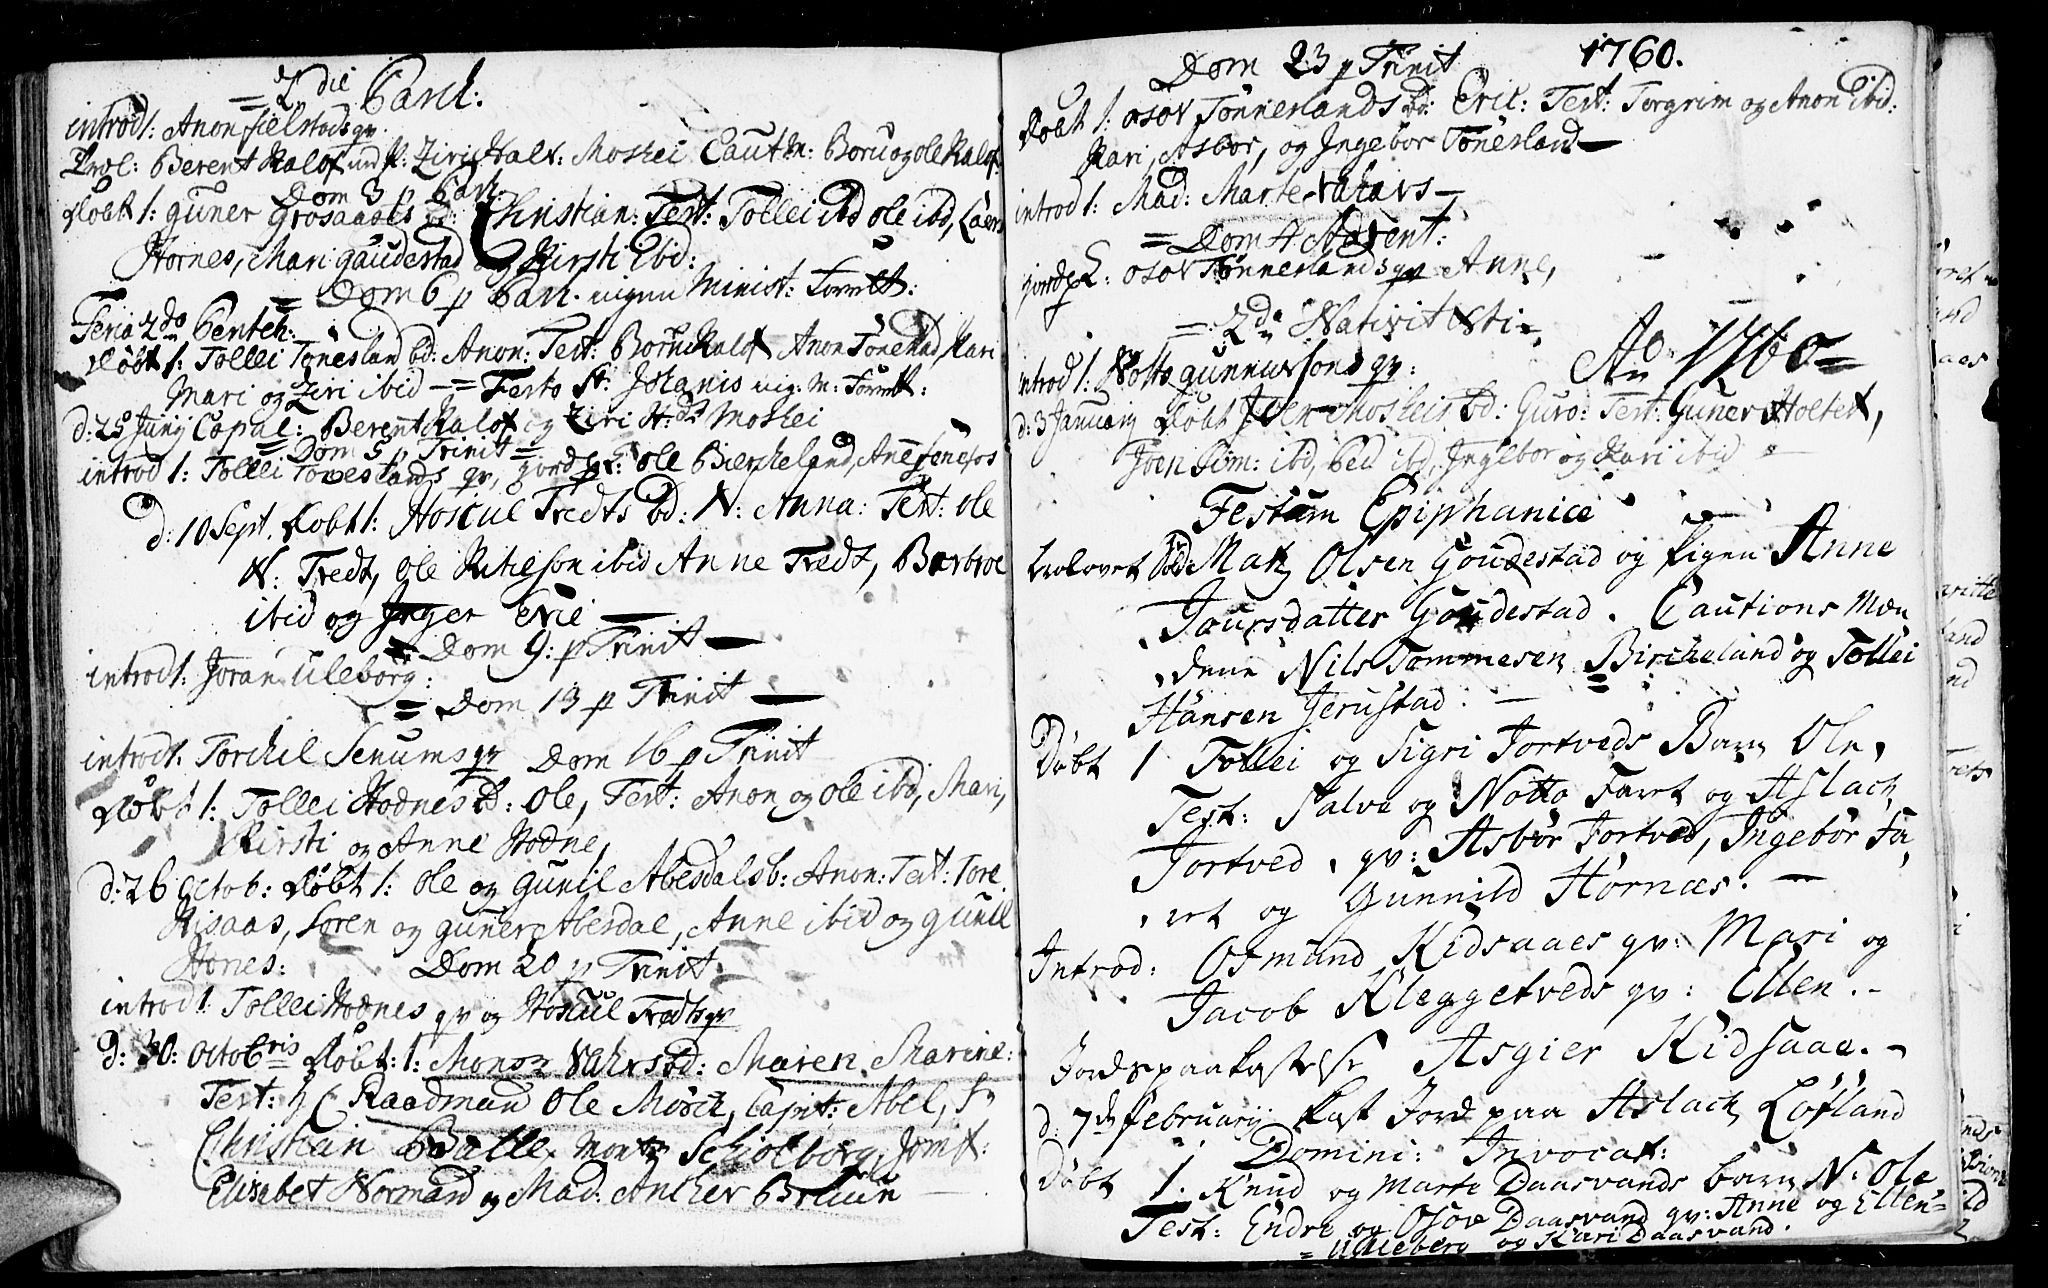 = 2 die Pasch:
introd 1: Anon fielstads qv.
Trol: Berent Kalof und P: Ziri Halv: Moskei Caut M: Boru og ole Kalof
Dom 3 p Pasch
døbt 1: guner Grosaases bd: Christian: Test: Tollei ibd ole ibd,
Hornes, Mari gaudestad og Kirsti ibd:
= Dom 6 p Pasch. ingen Minist: Forrett:
Feria 2da Pentek:
døbt 1: Tollei Tönesland bd: Anon: Test: Boru Kalof Anon Töneland, Kari
Mari og Ziri ibid — = Festo St: Johanis nig: M: Forrett:
d: 25 Junij Copul: Berent Kalof og Ziri H: dr Moskei
= Dom 5 p Trinit =
introd 1: Tollei Toneslands qv, jordf: Ole Bierkeland, Ane
d: 10 Sept. døbt 1: Hoskul Tredts bd: N: Anna: Test: ole
N: Tredt, Ole Kitilson ibid Anne Tredt, Barbroe
ibid og Inger Erie —
= Dom 9: p Trinit —
introd 1: Joran Uleborg:
= Dom 13 p Trinit —
introd 1: Torchil Senums qv Dom 16 p Trinit
døbt 1: Tollei Hodnes B: Ole, Test: Anon og Ole ibd, Mari,
Kirsti og Anne Hodne,
d: 26 Octob: døbt 1: Ole og Gunil Abesdals b: Anon: Test: Tore
Risaas, Soren og guner Abesdal, Anne ibid og gunil
Hones: Dom 20 p Trinit.
introd 1: Tollei Hodnes qv og Hoskul Tredts qv
d: 30: Octobris døbt: 1: Monsr Vahrs bd: Maren Marine:
Test: h Raadmand Ole Mörch, Capit: Abel, Sr
Christian Balle, Monsr Schiolborg, Jomf:
Elisabet Normand og Mad: Ancher Bruun —
Dom 23 p Trinit 1760.
døbt 1: osov Tönnerlands bd: Eric: Test: Torgrim og Anon ibid:
Kari, Asbor, og Ingebor Tönesland —
introd 1: Mad: Marte Vahrs —
= Dom 4 Advent:
jordf: osov Tönnerlands qv Anne,
= 2da Nativitatis =
introd 1: Notto gunnersons qv: Ao 1760 =
d: 3 January døbt Joen Moskeis bd: Guro: Test: Guner Holtet,
Joen Sim: ibid, ibd, Ingebor og Kari ibid
Festum Epiphaniæ
trolovet Sold: Matz Olsen Goudestad og Pigen Anne
Joursdatter Goudestad. Cautions Mæn
dene Nils Tommesen Bircheland og Tollei
Hansen Jerustad: —
Døbt 1 Tollei og Sigri Jortveds Barn Ole,
Test: Salve og Notto Faret og Aslach
Jortved, qv: Asbør Jortved, Ingebør Fa-
ret og Gunnild Hornæs. —
Introd: Osmund Kidsaaes qv: Mari og
Jacob Kleggetveds qv: Ellen. -
Jordspaakastelse Asgier Kidsaae. -
d. 7de February kast Jord paa Aslach Løfland
Domini: Invocat:
Døbt 1. Knud og Marte Daasvands barn N: Ole
Test: Endre og Osov Daasvand qv: Anne og Ellen
= Ulleberg og Kari Daasvand.